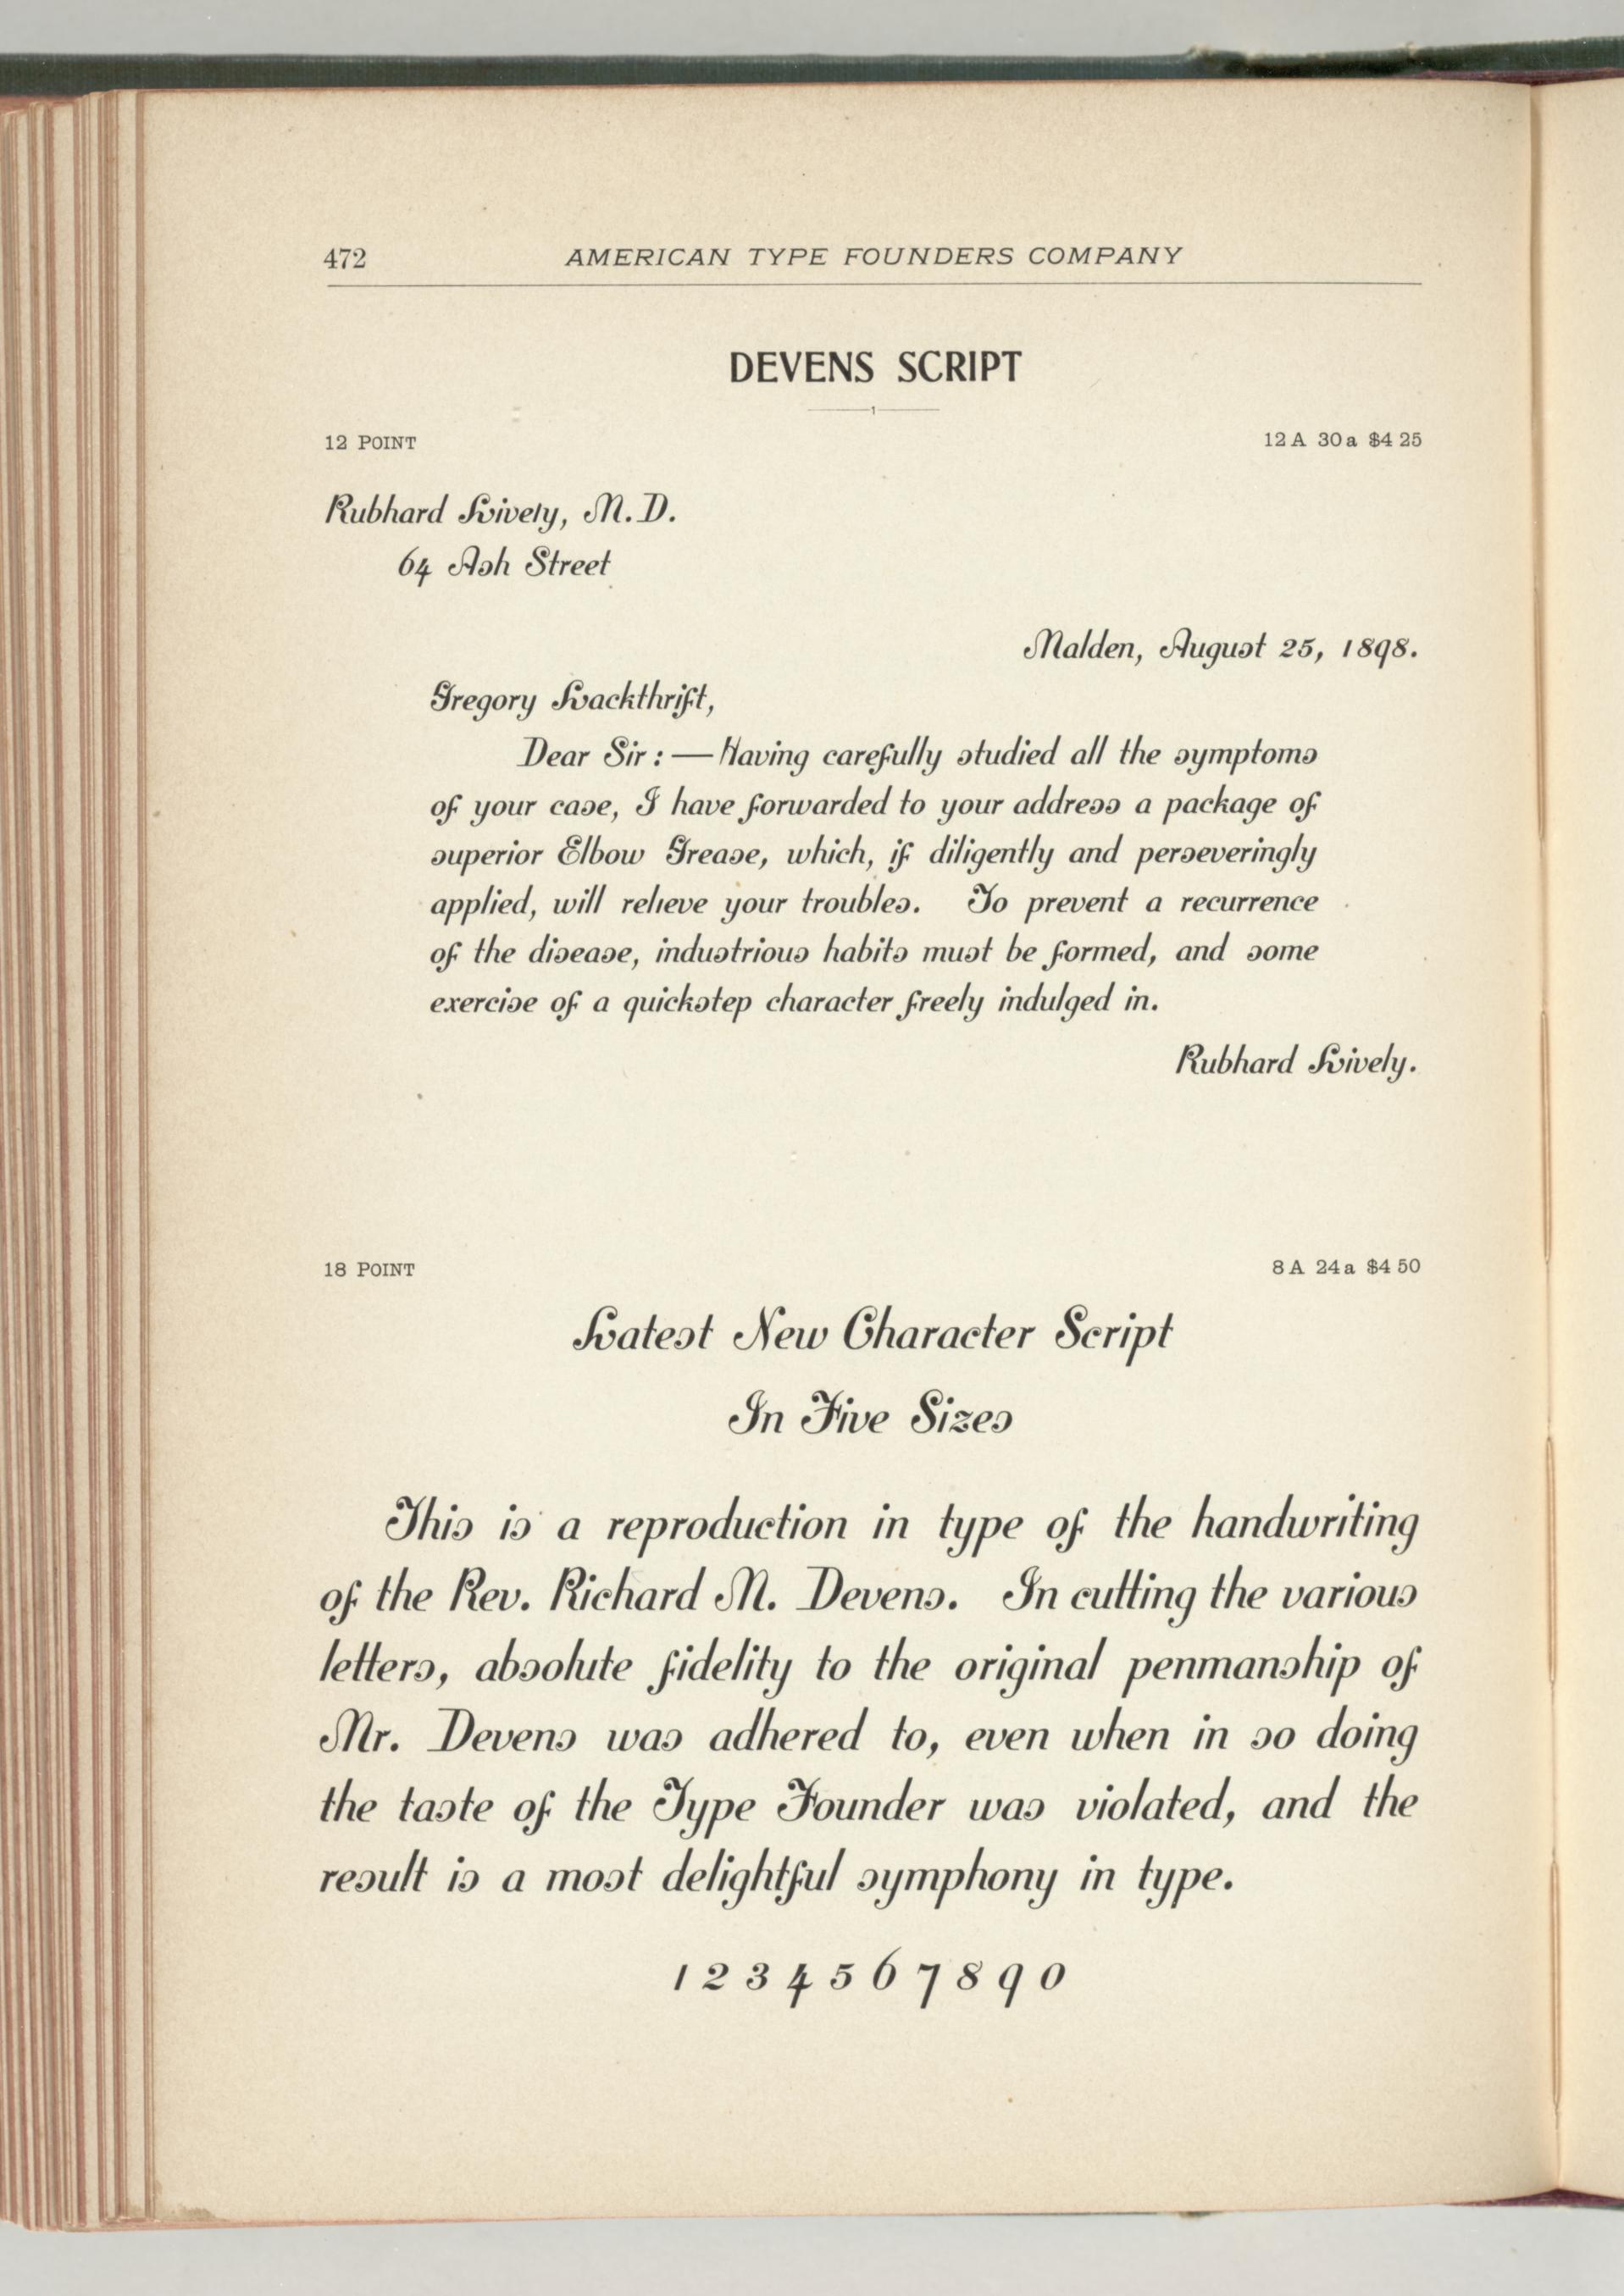 472
AMERICAN TYPE FOUNDERS COMPANY
DEVENS SCRIPT
12 POINT
12 A 30 a $4 25
Rubhard Lively, M. D.
64 Ash Street
Malden, August 25, 1898.
Gregory Lackthrift,
Dear Sir : — Having carefully studied all the symptoms
of your case, I have forwarded to your address a package of
superior Elbow Grease, which, if diligently and perseveringly
applied, will relieve your troubles. To prevent a recurrence
of the disease, industrious habits must be formed, and some
exercise of a quickstep character freely indulged in.
Rubhard Lively.
18 POINT
8 A 24 a $4 50
Latest New Character Script
In Five Sizes
This is a reproduction in type of the handwriting
of the Rev. Richard M. Devens. In cutting the various
letters, absolute fidelity to the original penmanship of
Mr. Devens was adhered to, even when in so doing
the taste of the Type Founder was violated, and the
result is a most delightful symphony in type.
1 2 3 4 5 6 7 8 9 0